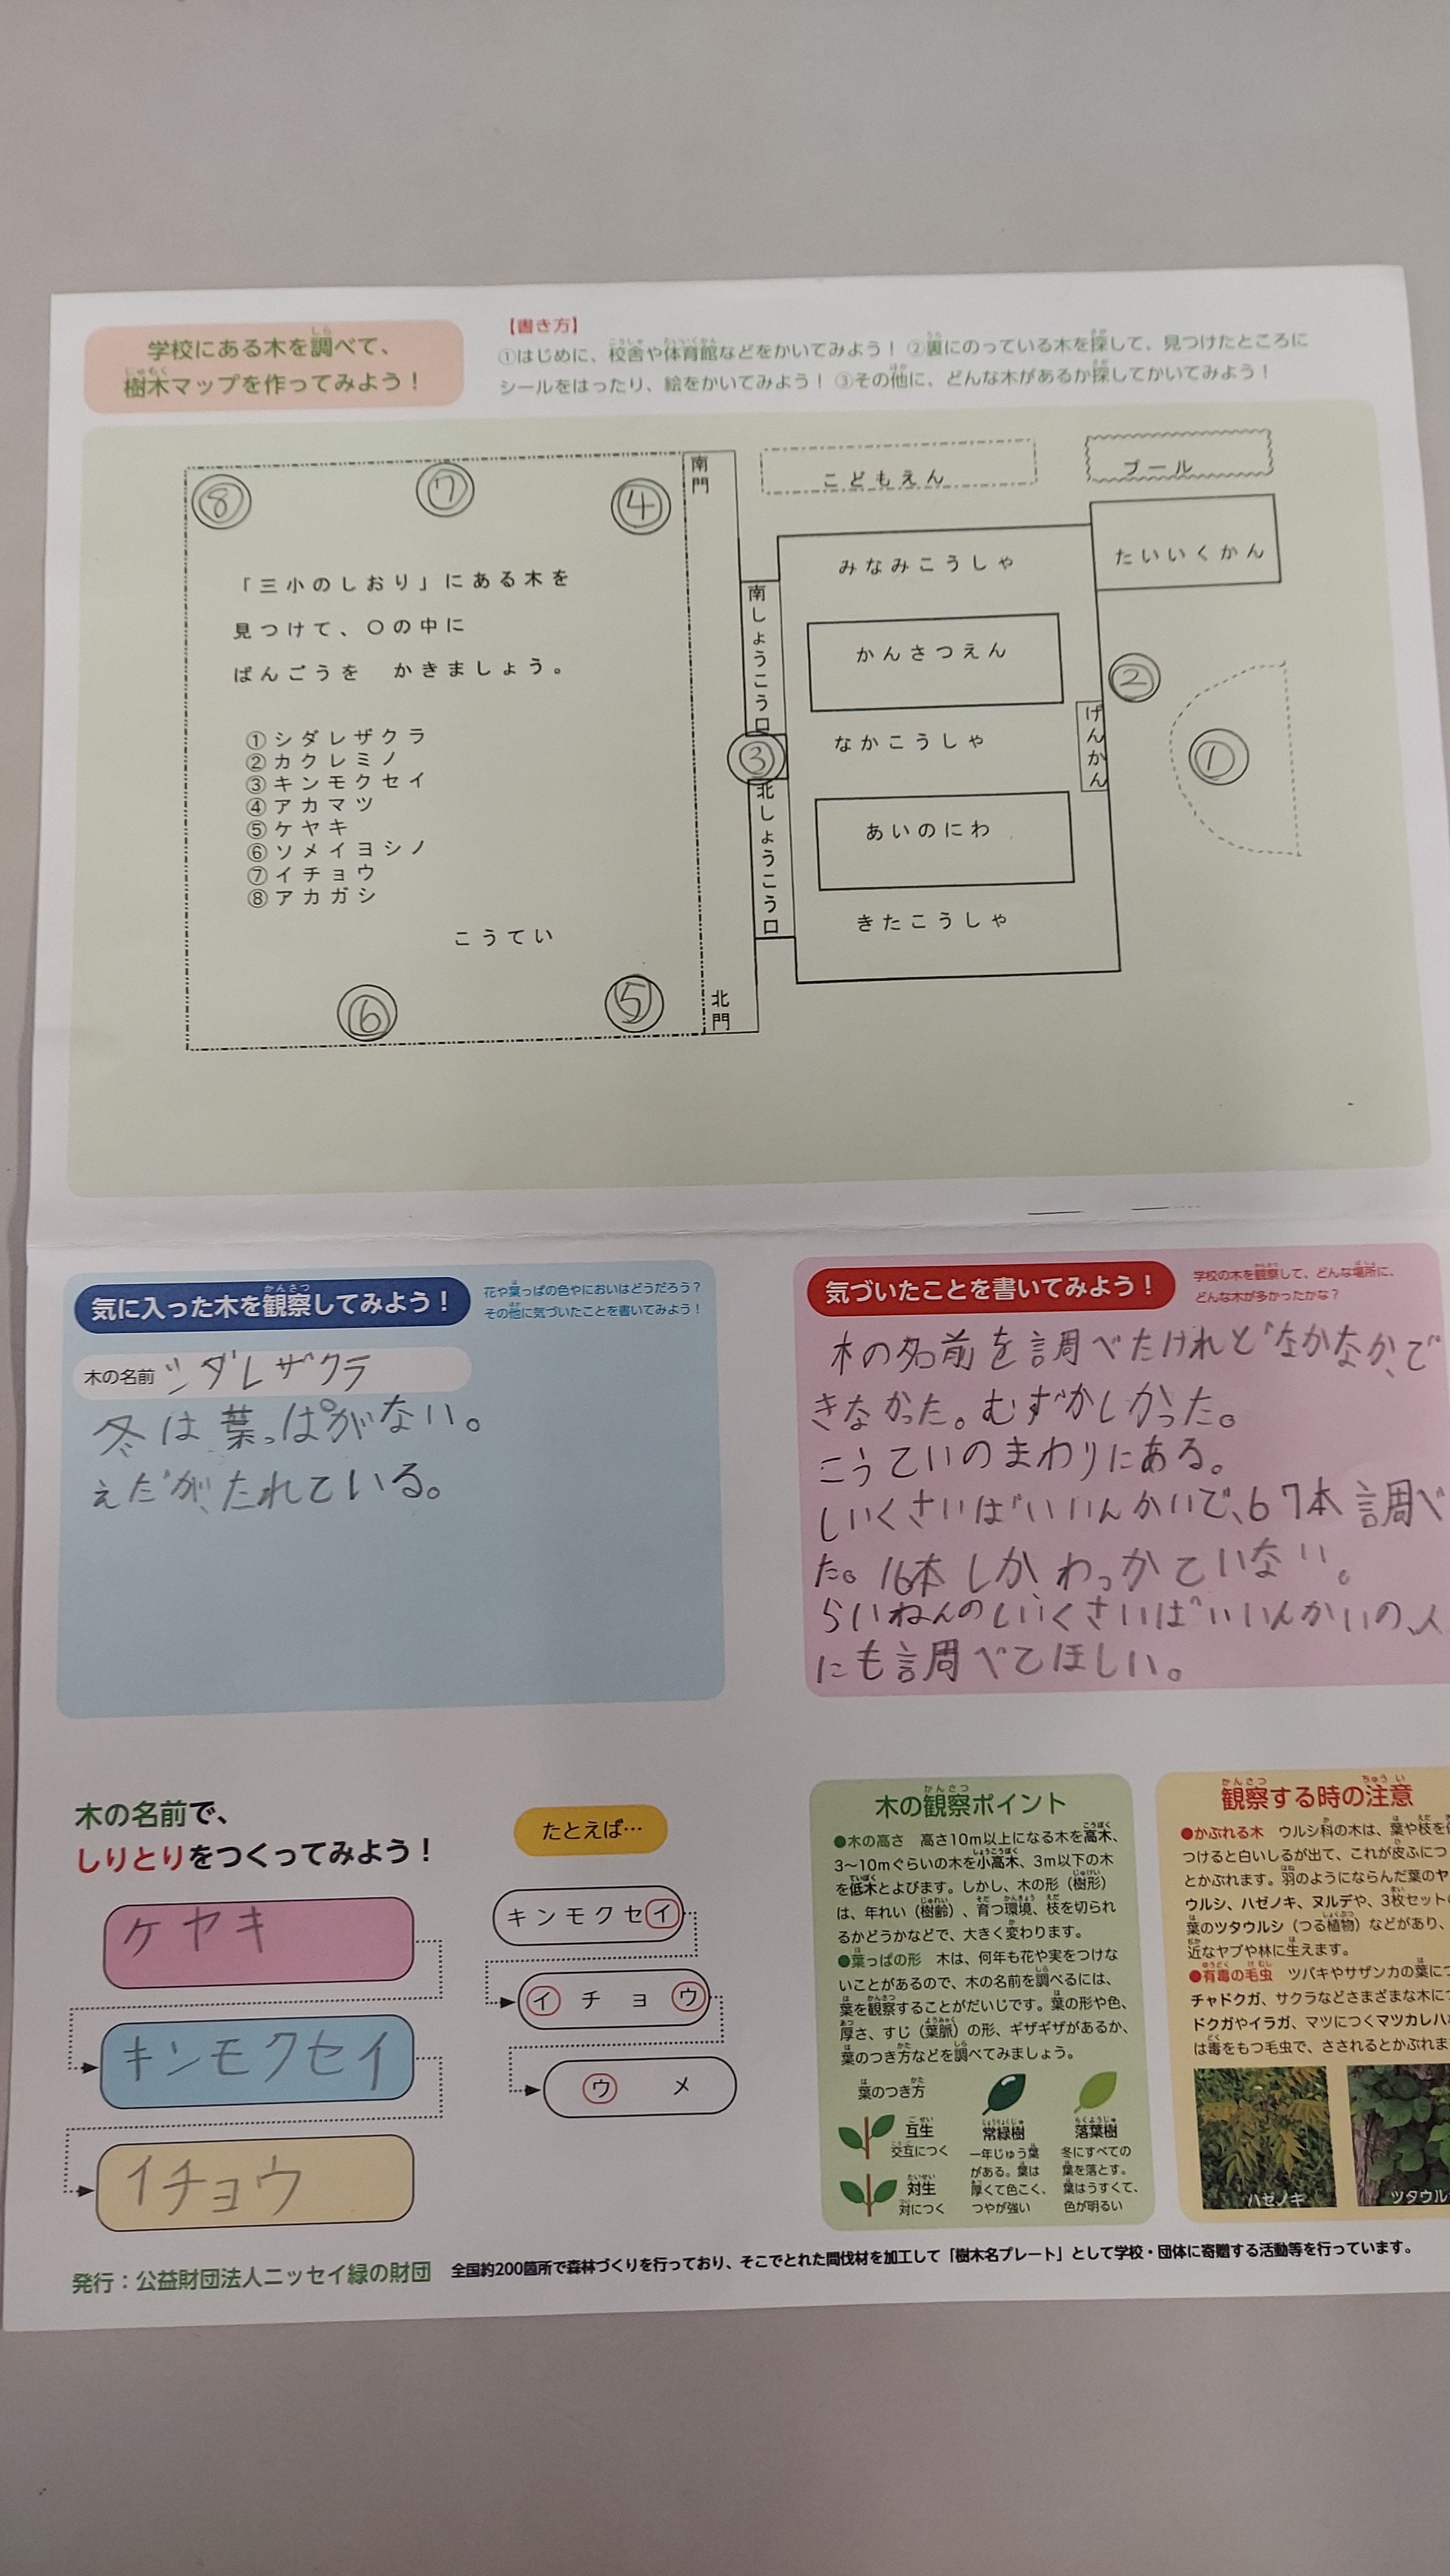 学校にある木を調べて、
樹木マップを作ってみよう！
【書き方】
①はじめに、校舎や体育館などをかいてみよう！ ②裏にのっている木を探して、見つけたところに
シールをはったり、絵をかいてみよう！ ③その他に、どんな木があるか探してかいてみよう！
⑧
⑦
④
南門
こどもえん
プール
「三小のしおり」にある木を
見つけて、〇の中に
ばんごうを かきましょう。
みなみこうしゃ
たいいくかん
南しょうこう口
かんさつえん
②
①シダレザクラ
②カクレミノ
③キンモクセイ
④アカマツ
⑤ケヤキ
⑥ソメイヨシノ
⑦イチョウ
⑧アカガシ
③
なかこうしゃ
げんかん
①
北しょうこう口
あいのにわ
きたこうしゃ
こうてい
⑥
⑤
北門
気に入った木を観察してみよう！
花や葉っぱの色やにおいはどうだろう？
その他に気づいたことを書いてみよう！
木の名前 シダレザクラ
冬は葉っぱがない。
えだが、たれている。
気づいたことを書いてみよう！
学校の木を観察して、どんな場所に、
どんな木が多かったかな？
木の名前を調べたけれどなかなか、で
きなかった。むずかしかった。
こうていのまわりにある。
しいくさいばいいんかいで、67本調べ
た。16本しかわっかていない。
らいねんのしいくさいばいいんかいの、人
にも調べてほしい。
木の名前で、
しりとりをつくってみよう！
ケヤキ
キンモクセイ
イチョウ
たとえば…
キンモクセイ
イチョウ
ウメ
木の観察ポイント
●木の高さ 高さ10m以上になる木を高木、
3〜10mぐらいの木を小高木、3m以下の木
を低木とよびます。しかし、木の形（樹形）
は、年れい（樹齢）、育つ環境、枝を切られ
るかどうかなどで、大きく変わります。
●葉っぱの形 木は、何年も花や実をつけな
いことがあるので、木の名前を調べるには、
葉を観察することがだいじです。葉の形や色、
厚さ、すじ（葉脈）の形、ギザギザがあるか、
葉のつき方などを調べてみましょう。
葉のつき方
互生
交互につく
対生
対につく
常緑樹
一年じゅう葉
がある。葉は
厚くて色こく、
つやが強い
落葉樹
冬にすべての
葉を落とす。
葉はうすくて、
色が明るい
観察する時の注意
●かぶれる木 ウルシ科の木は、葉や枝を
つけると白いしるが出て、これが皮ふにつ
とかぶれます。羽のようにならんだ葉のヤ
ウルシ、ハゼノキ、ヌルデや、3枚セット
葉のツタウルシ（つる植物）などがあり、
近なヤブや林に生えます。
●有毒の毛虫 ツバキやサザンカの葉につ
チャドクガ、サクラなどさまざまな木につ
ドクガやイラガ、マツにつくマツカレハ
は毒をもつ毛虫で、さされるとかぶれま
ハゼノキ
ツタウル
発行：公益財団法人ニッセイ緑の財団
全国約200箇所で森林づくりを行っており、そこでとれた間伐材を加工して「樹木名プレート」として学校・団体に寄贈する活動等を行っています。